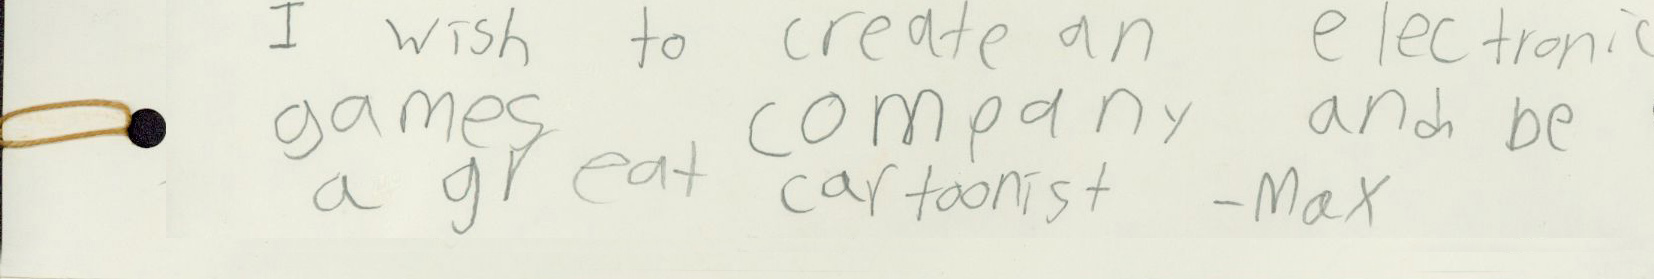 I wish to create an electronic
games company and be
a great cartoonist -Max